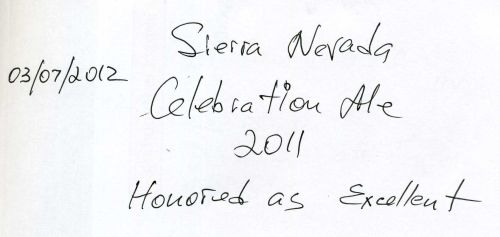 Sierra Nevada
03/07/2012
Celebration Ale
2011
Honored as Excellent